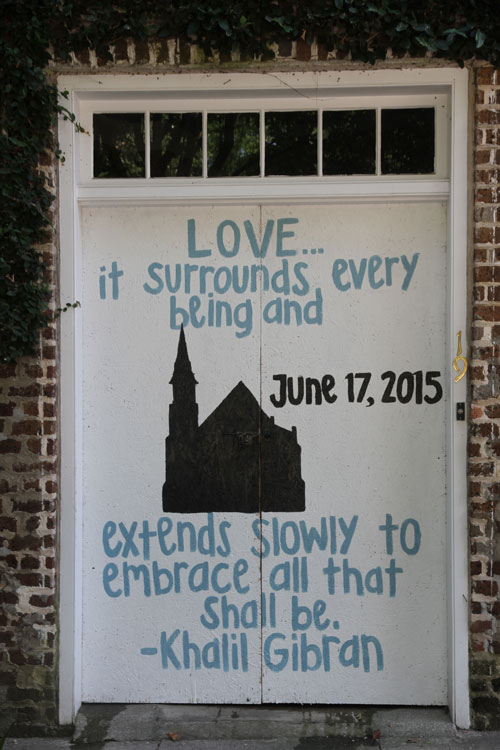 LOVE...
it surrounds every
being and
June 17, 2015
extends slowly to
embrace all that
shall be.
-Khalil Gibran
19